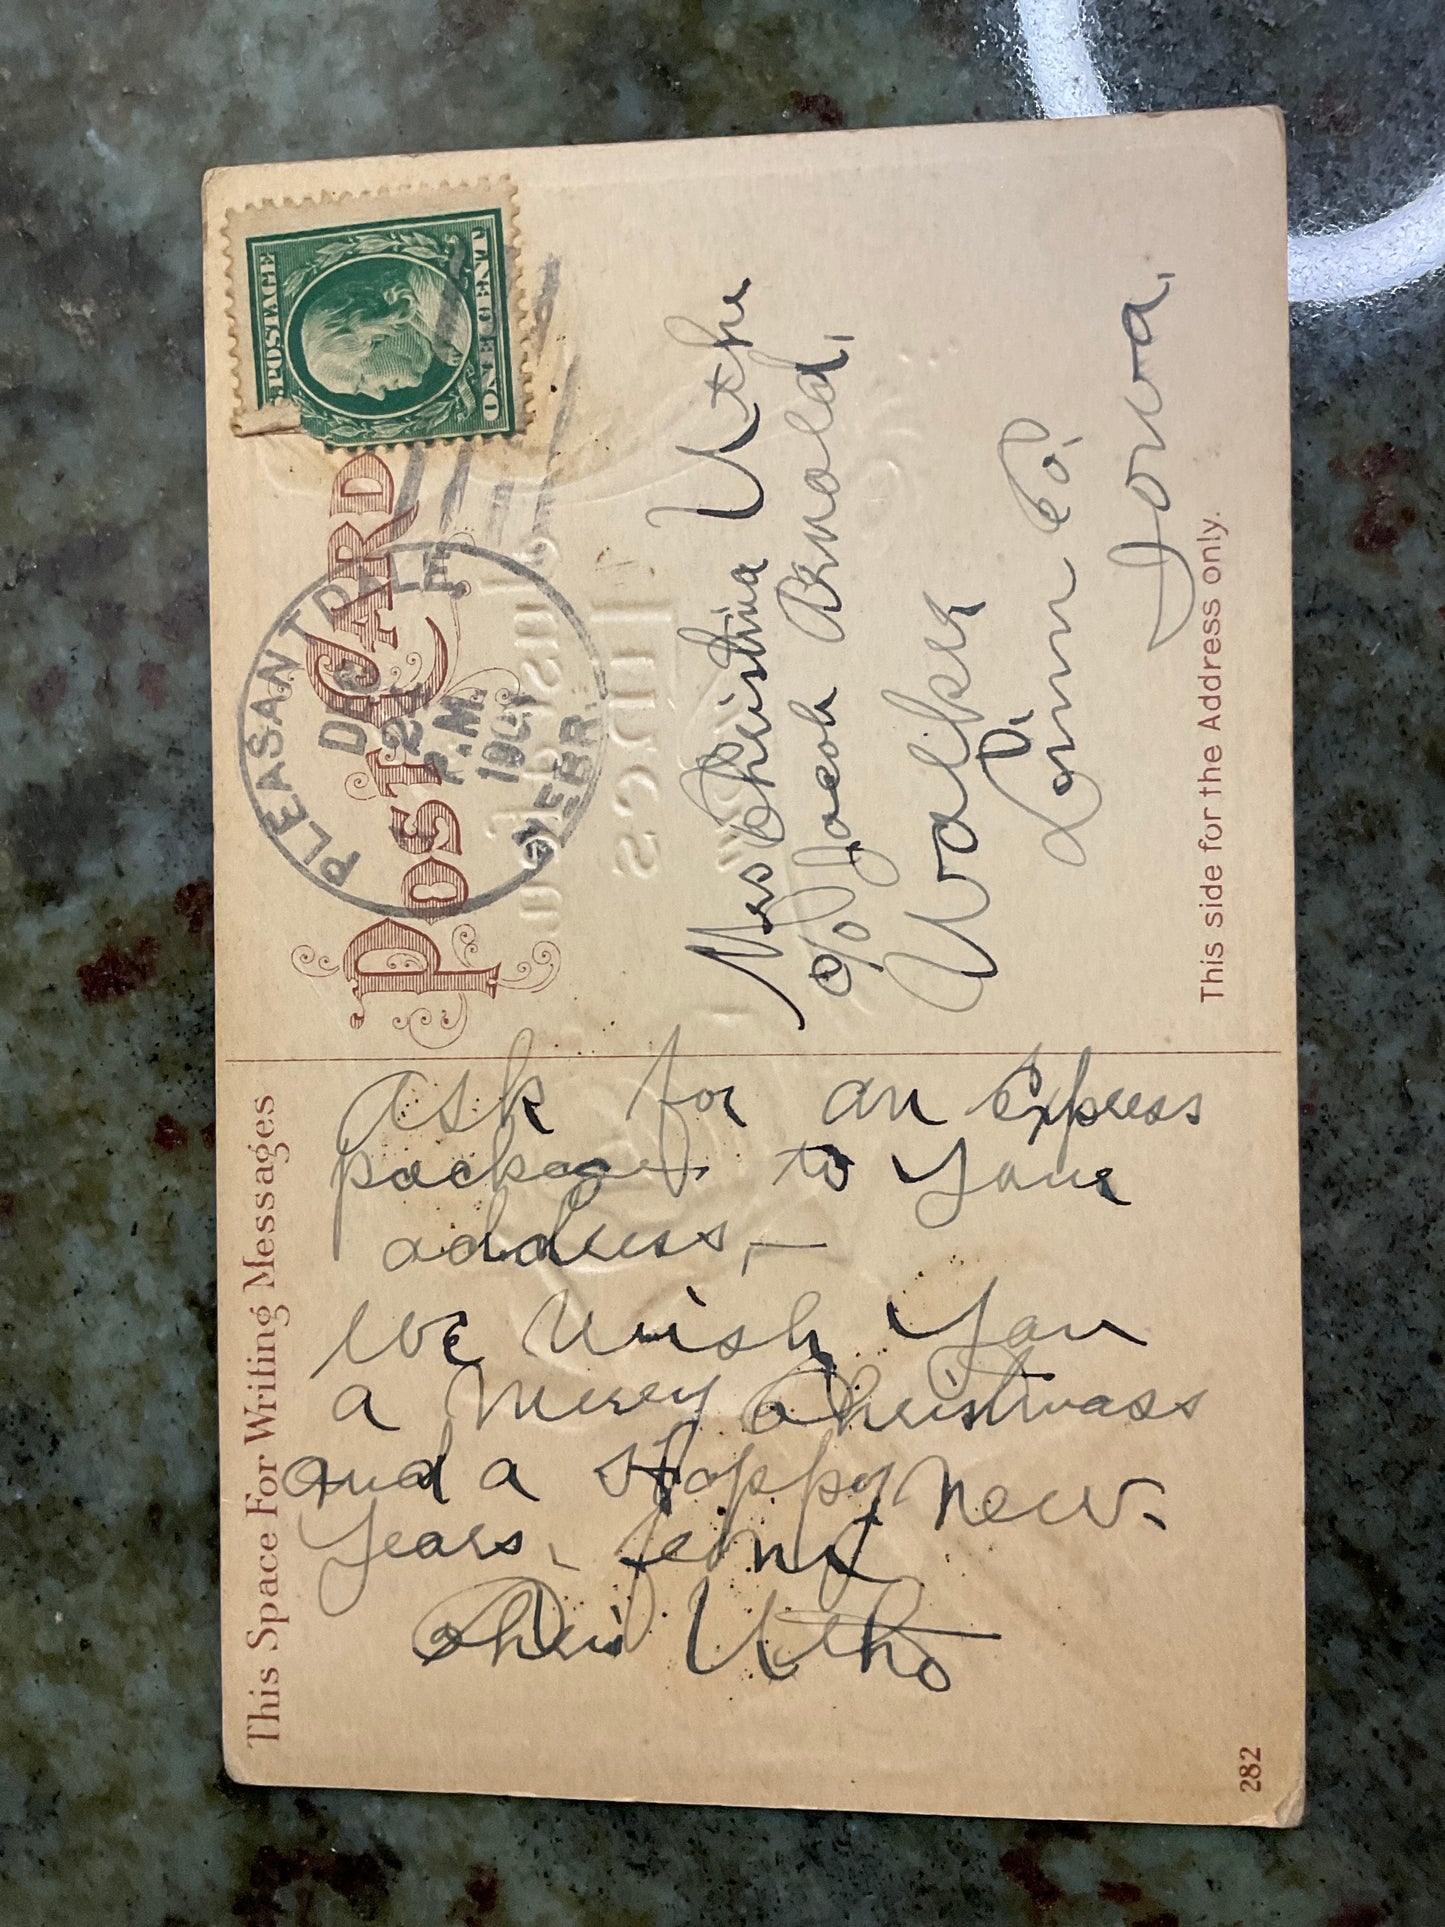 This Space For Writing Messages
POST CARD
PLEASANT DALE
DEC
P.M.
NEBR.
POSTAGE
ONE CENT
ask for an Express
package to your
address, —
We wish you
a Merry Christmass
and a Happy New
Years,
Chris Uthe
Mrs Christina Uthe
c/o Jacob Arnold.
Walker
Linn Co.
Iowa.
This side for the Address only.
282